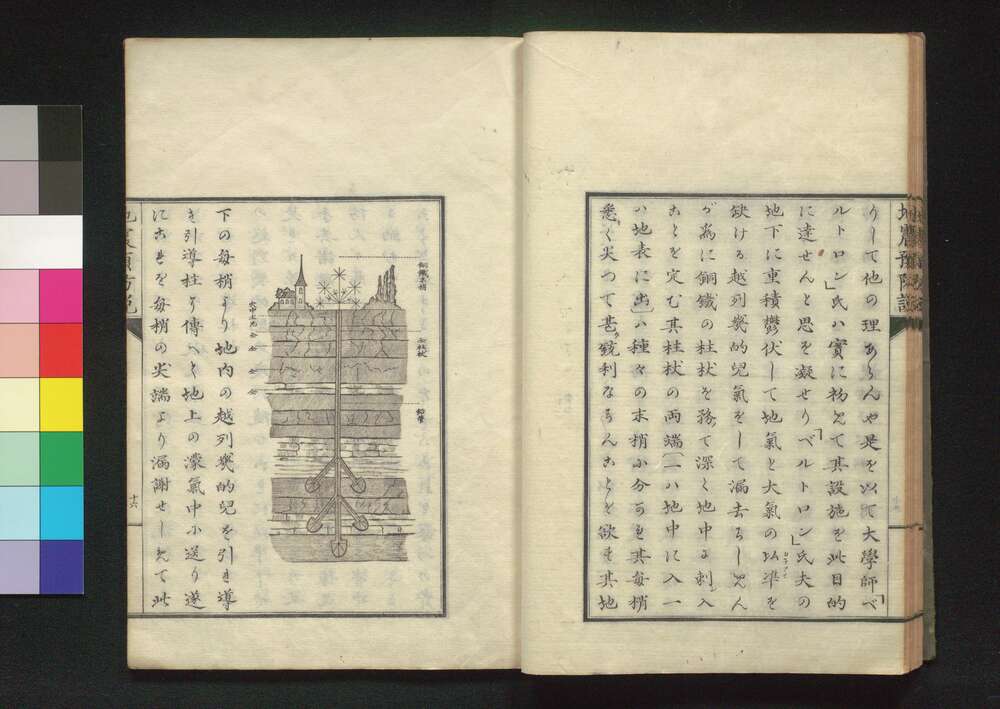 地震預防説
りして他の理あらんや是を以て大學師「ベ
ルトロン」氏ハ實に初めて其設施を此目的
に達せんと思を凝せり「ベルトロン」氏夫の
地下に重積鬱伏して地氣と大氣の以準を
缺ける越列幾的兒氣をして漏去らしめん
が為に銅鐵の柱杖を務て深く地中に刺入
ことを定む其柱杖の両端(一ハ地中に入一
ハ地表に出)ハ種々の末梢に分ち其每梢
悉く尖つて甚銳利ならんことを欲す其地
銅鐵
鉛管
大地
下の每梢より地内の越列幾的兒を引き導
き引導柱を傳へて地上の濛氣中に送り遂
にこれを每梢の尖端より漏謝せしめて此
地震預防説
十六